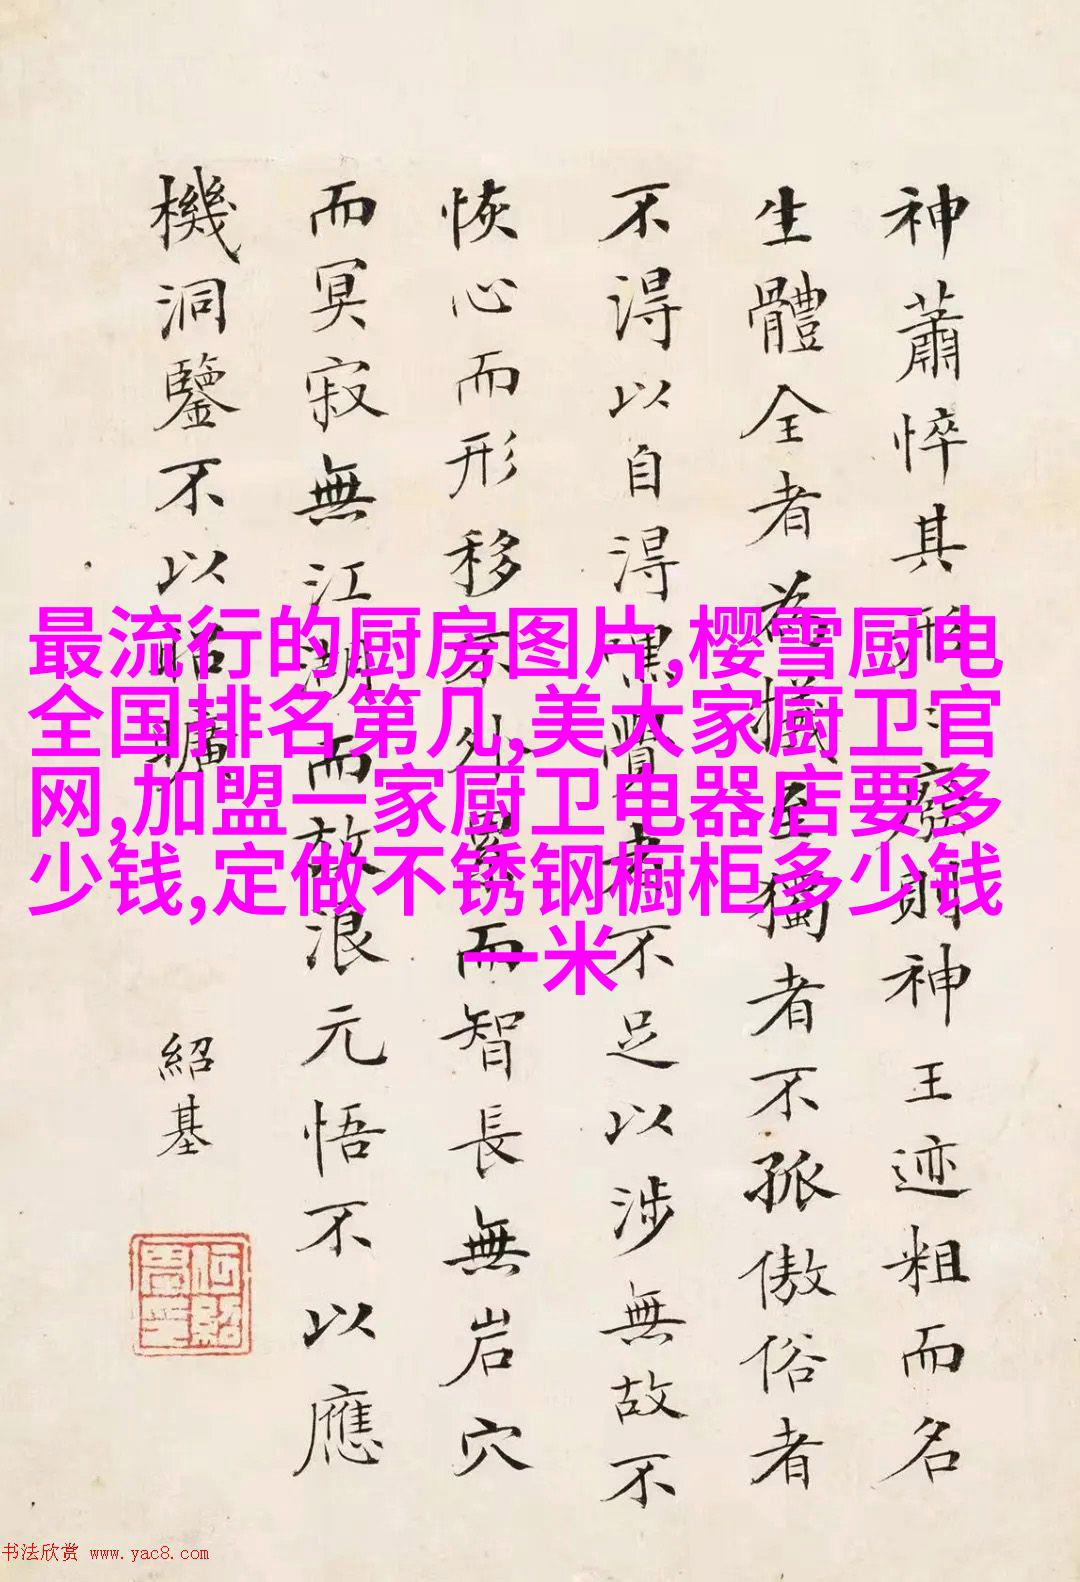 最流行的厨房图片,樱雪厨电
全国排名第几,美大家厨卫官
网,加盟一家厨卫电器店要多
少钱,定做不锈钢橱柜多少钱
一米
神蕭悴其形〻廢則神王迹粗而名
生體全者為至獨者不孤傲俗者
不淂以自淂嘿覽者不足以涉無故不
恢心而形移外累而智長無岩穴
而冥寂無江湖而放浪元悟不以應
機洞鑒不以昭曠
紹基
书法欣赏 www.yac8.com